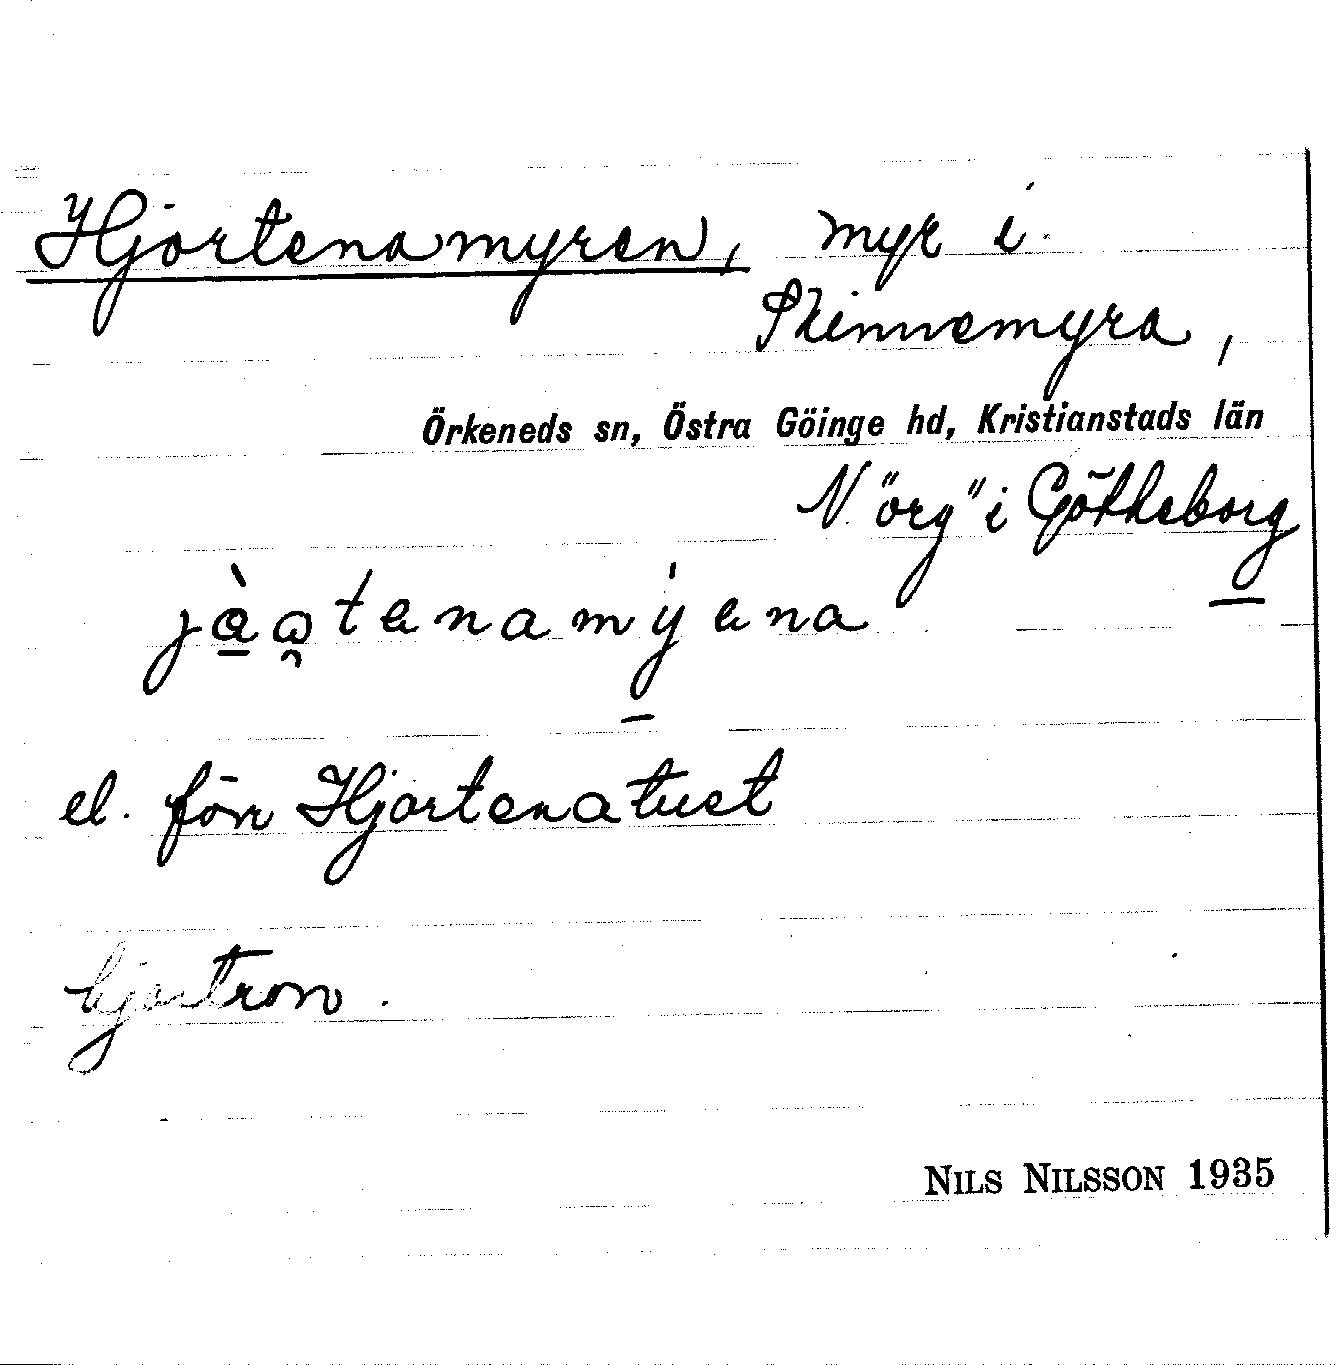 Hjortenamyren, myr i
Skinnemyra,
Örkeneds sn, Östra Göinge hd, Kristianstads län
N "org" i Götheborg
el. förr Hjortenatuet
hjortron.
NILS NILSSON 1935